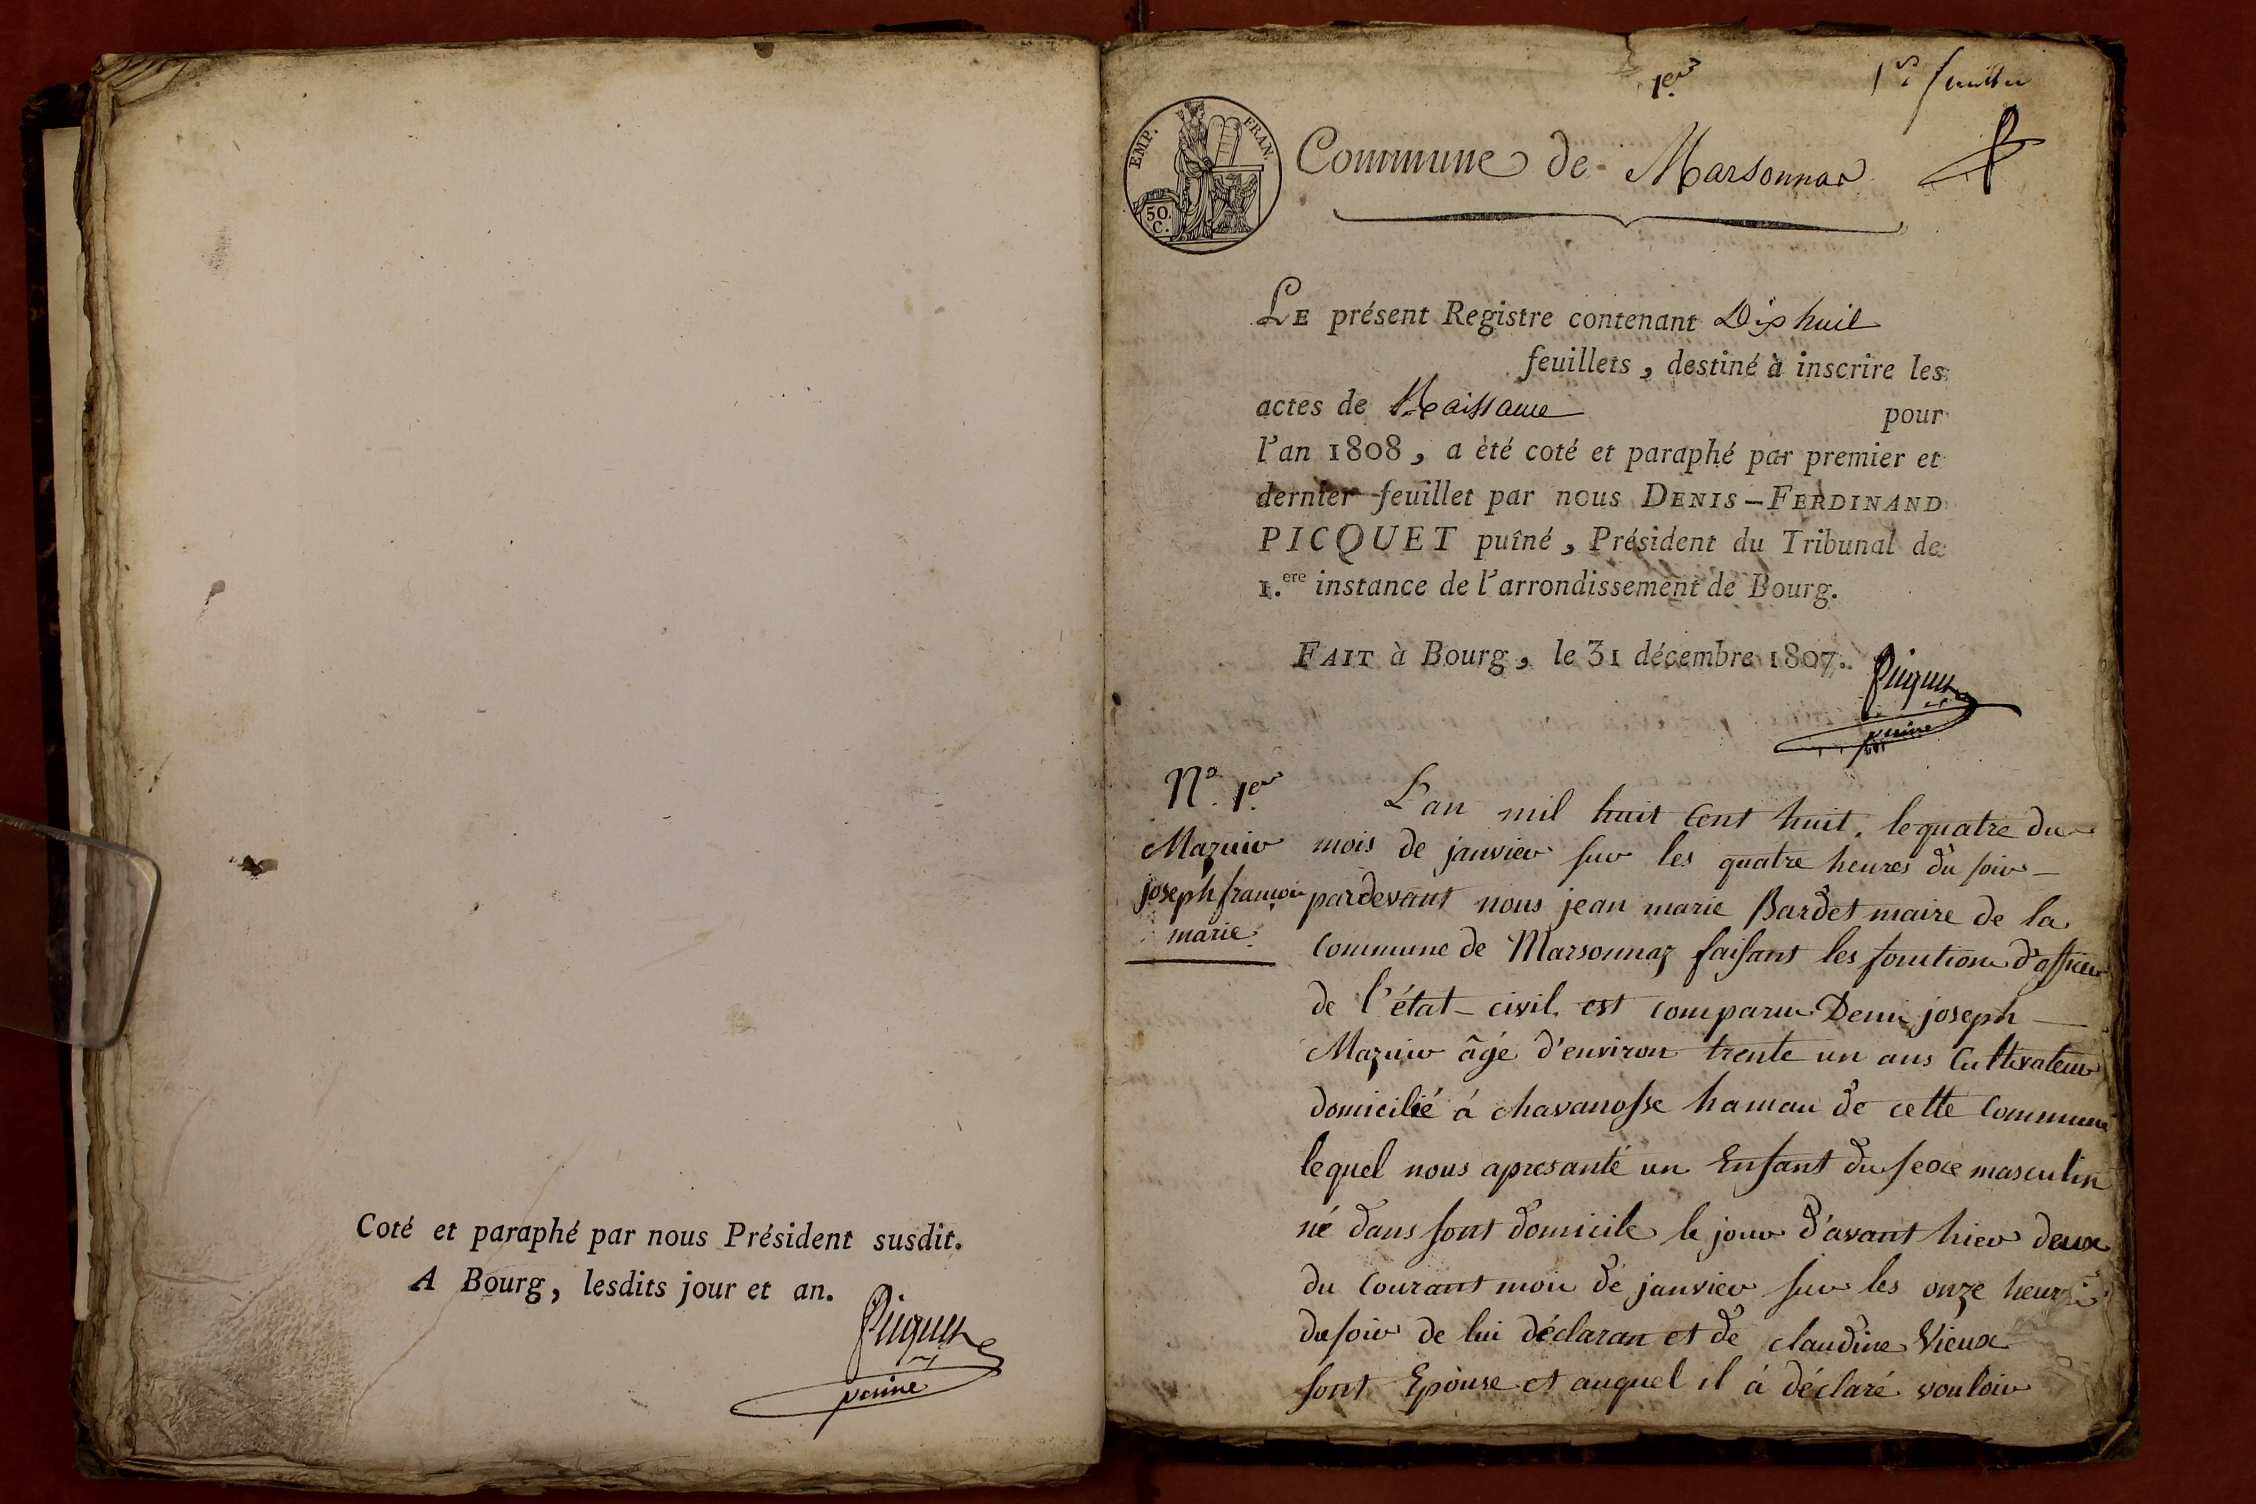 Coté et paraphé par nous Président susdit.
A Bourg, lesdits jour et an.
Picquet
puiné
1er
1er feuillet
EMP. FRAN.
50.
C.
Commune de Marsonnas
LE présent Registre contenant Dix huit
feuillets, destiné à inscrire les
actes de Naissance pour
l'an 1808, a èté coté et paraphé par premier et
dernier feuillet par nous DENIS-FERDINAND
PICQUET puîné, Président du Tribunal de
1.ere instance de l'arrondissement de Bourg.
FAIT à Bourg, le 31 décembre 1807.
Picquet
puiné
No. 1er
Mazuir
joseph françois
marie
L'an mil huit cent huit. le quatre du
mois de janvier sur les quatre heures du soir
pardevant nous jean marie Bardet maire de la
commune de Marsonnaz faisant les fonctions d'officier
de l'état-civil. est comparu Denis joseph
Mazuir âgé d'environ trente un ans Cultivateur
domicilié á chavanosse hamau de cette Commune
lequel nous apresanté un Enfant du sexe masculin
né dans sont domicile le jour d'avant hier deux
du Courant mois de janvier sur les onze heures
du soir de lui déclaran et de claudine Vieux
sont Epouse et auquel il á déclaré vouloir